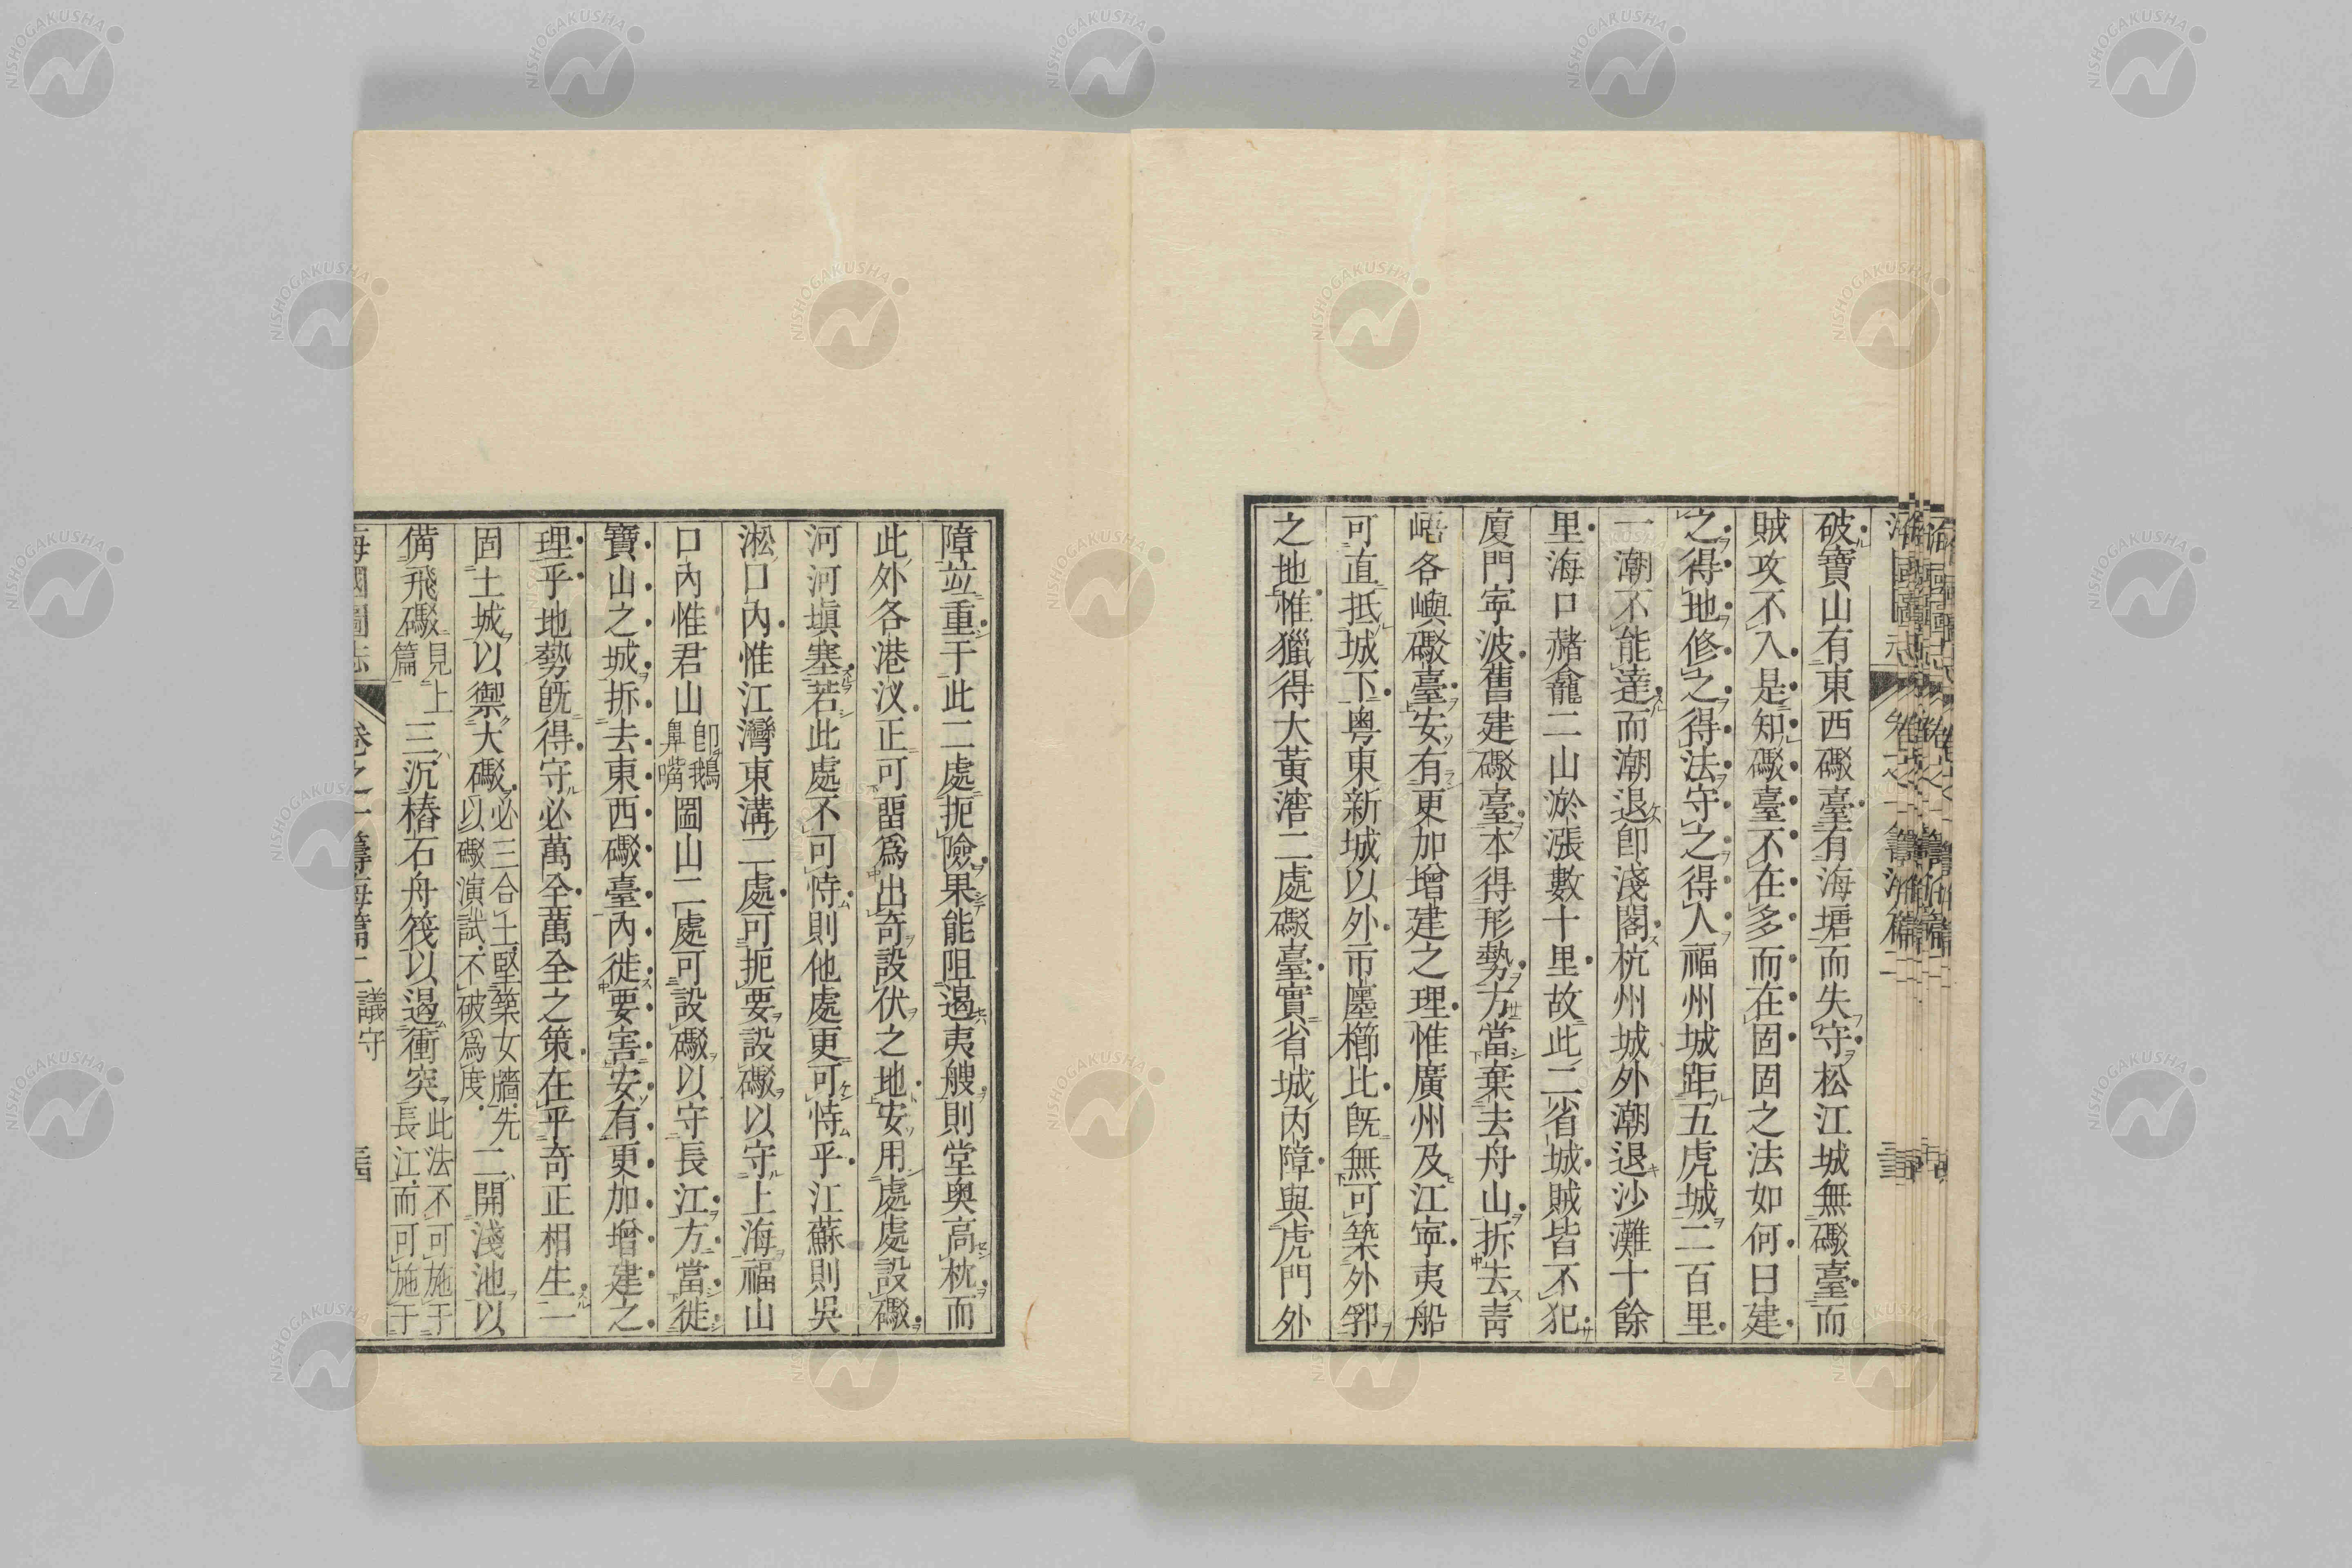 破寶山有東西礮臺有海塘而失守松江城無礮臺而
賊攻不入是知礮臺不在多而在固固之法如何曰建
之得地修之得法守之得人福州城距五虎城二百里
一潮不能達而潮退卽淺閣杭州城外潮退沙灘十餘
里海口赭龕二山淤漲數十里故此二省城賊皆不犯
廈門寧波舊建礮臺本得形勢方當棄去舟山拆去靑
峿各嶼礮臺安有更加增建之理惟廣州及江寧夷船
可直抵城下粤東新城以外市廛櫛比旣無可築外郛
之地惟獵得大黃滘二處礮臺實省城內障與虎門外
障竝重于此二處扼險果能阻遏夷艘則堂奥高枕而
此外各港汊正可留爲出奇設伏之地安用處處設礮
河河塡塞若此處不可恃則他處更可恃乎江蘇則吳
淞口內惟江灣東溝二處可扼要設礮以守上海福山
口內惟君山卽鵝鼻嘴圌山二處可設礮以守長江方當徙
寶山之城拆去東西礮臺內徙要害安有更加增建之
理乎地勢旣得守必萬全萬全之策在乎奇正相生一
固土城以禦大礮必三合土堅築女牆先以礮演試不破爲度二開淺池以
備飛礮見上篇三沉樁石舟筏以遏衝突此法不可施于長江而可施于
海國圖志 卷之一籌海篇二議守